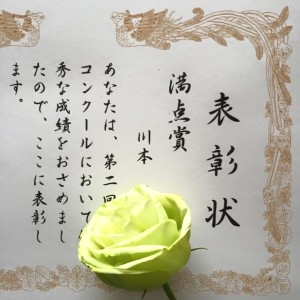 表彰状
満点賞
川本
あなたは、第二回
コンクールにおいて
秀な成績をおさめまし
たので、ここに表彰し
ます。